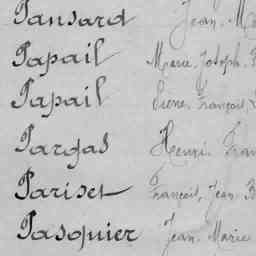 Pansard Jean. Ma
Papail Marie. Joseph.
Papail Pierre. François.
Pargas Henri. Fran
Pariset François. Jean. B
Pasquier Jean. Marie